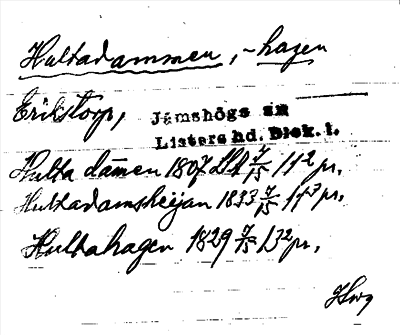 Hultadammen, -hagen
Erikstorp,
Jämshögs sn
Listers hd. Blek. l.
Hulta damen 1807 7/15 112 pr.
Hultadamsheijan 1833 7/15 113 pr.
Hultahagen 1829 7/15 132 pr.